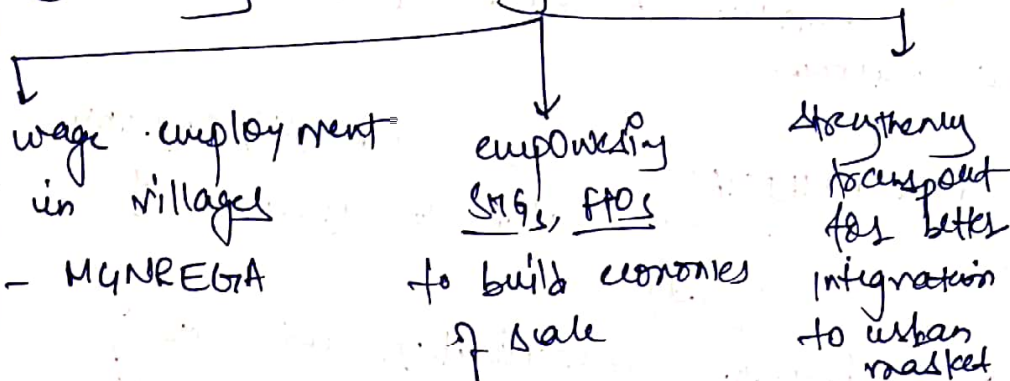 wage employment
in villages
- MGNREGA
empowering
SHGs, FPOs
to build economies
of scale
strengthening
transport
for better
integration
to urban
market